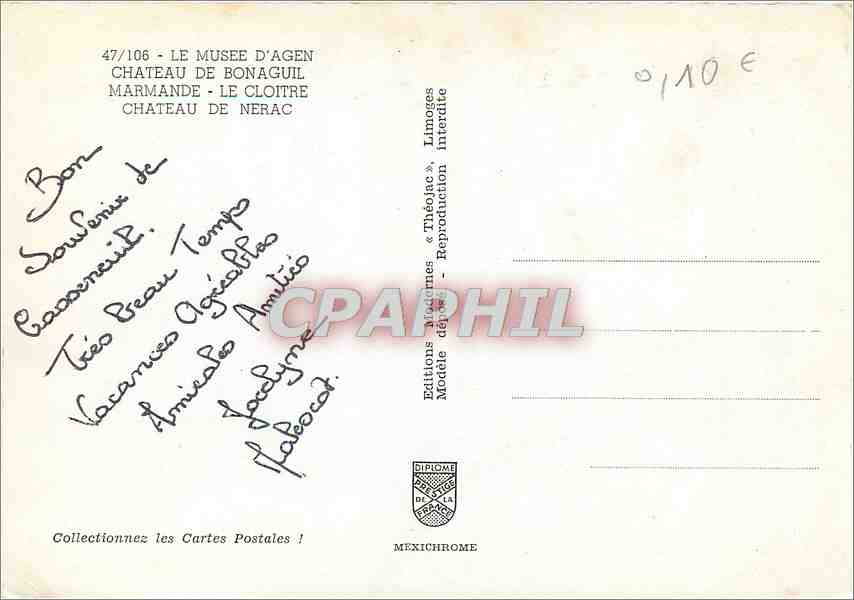 47/106 - LE MUSEE D'AGEN
CHATEAU DE BONAGUIL
MARMANDE - LE CLOITRE
CHATEAU DE NERAC
0,10 €
Bon
Souvenir de
Casseneuil.
Très beau Temps
Vacances Agréables
Amicales Amitiés
Jocelyne
Editions Modernes « Théojac », Limoges
Modèle déposé - Reproduction interdite
CPAPHIL
DIPLOME
PRESTIGE
DE LA
FRANCE
Collectionnez les Cartes Postales !
MEXICHROME